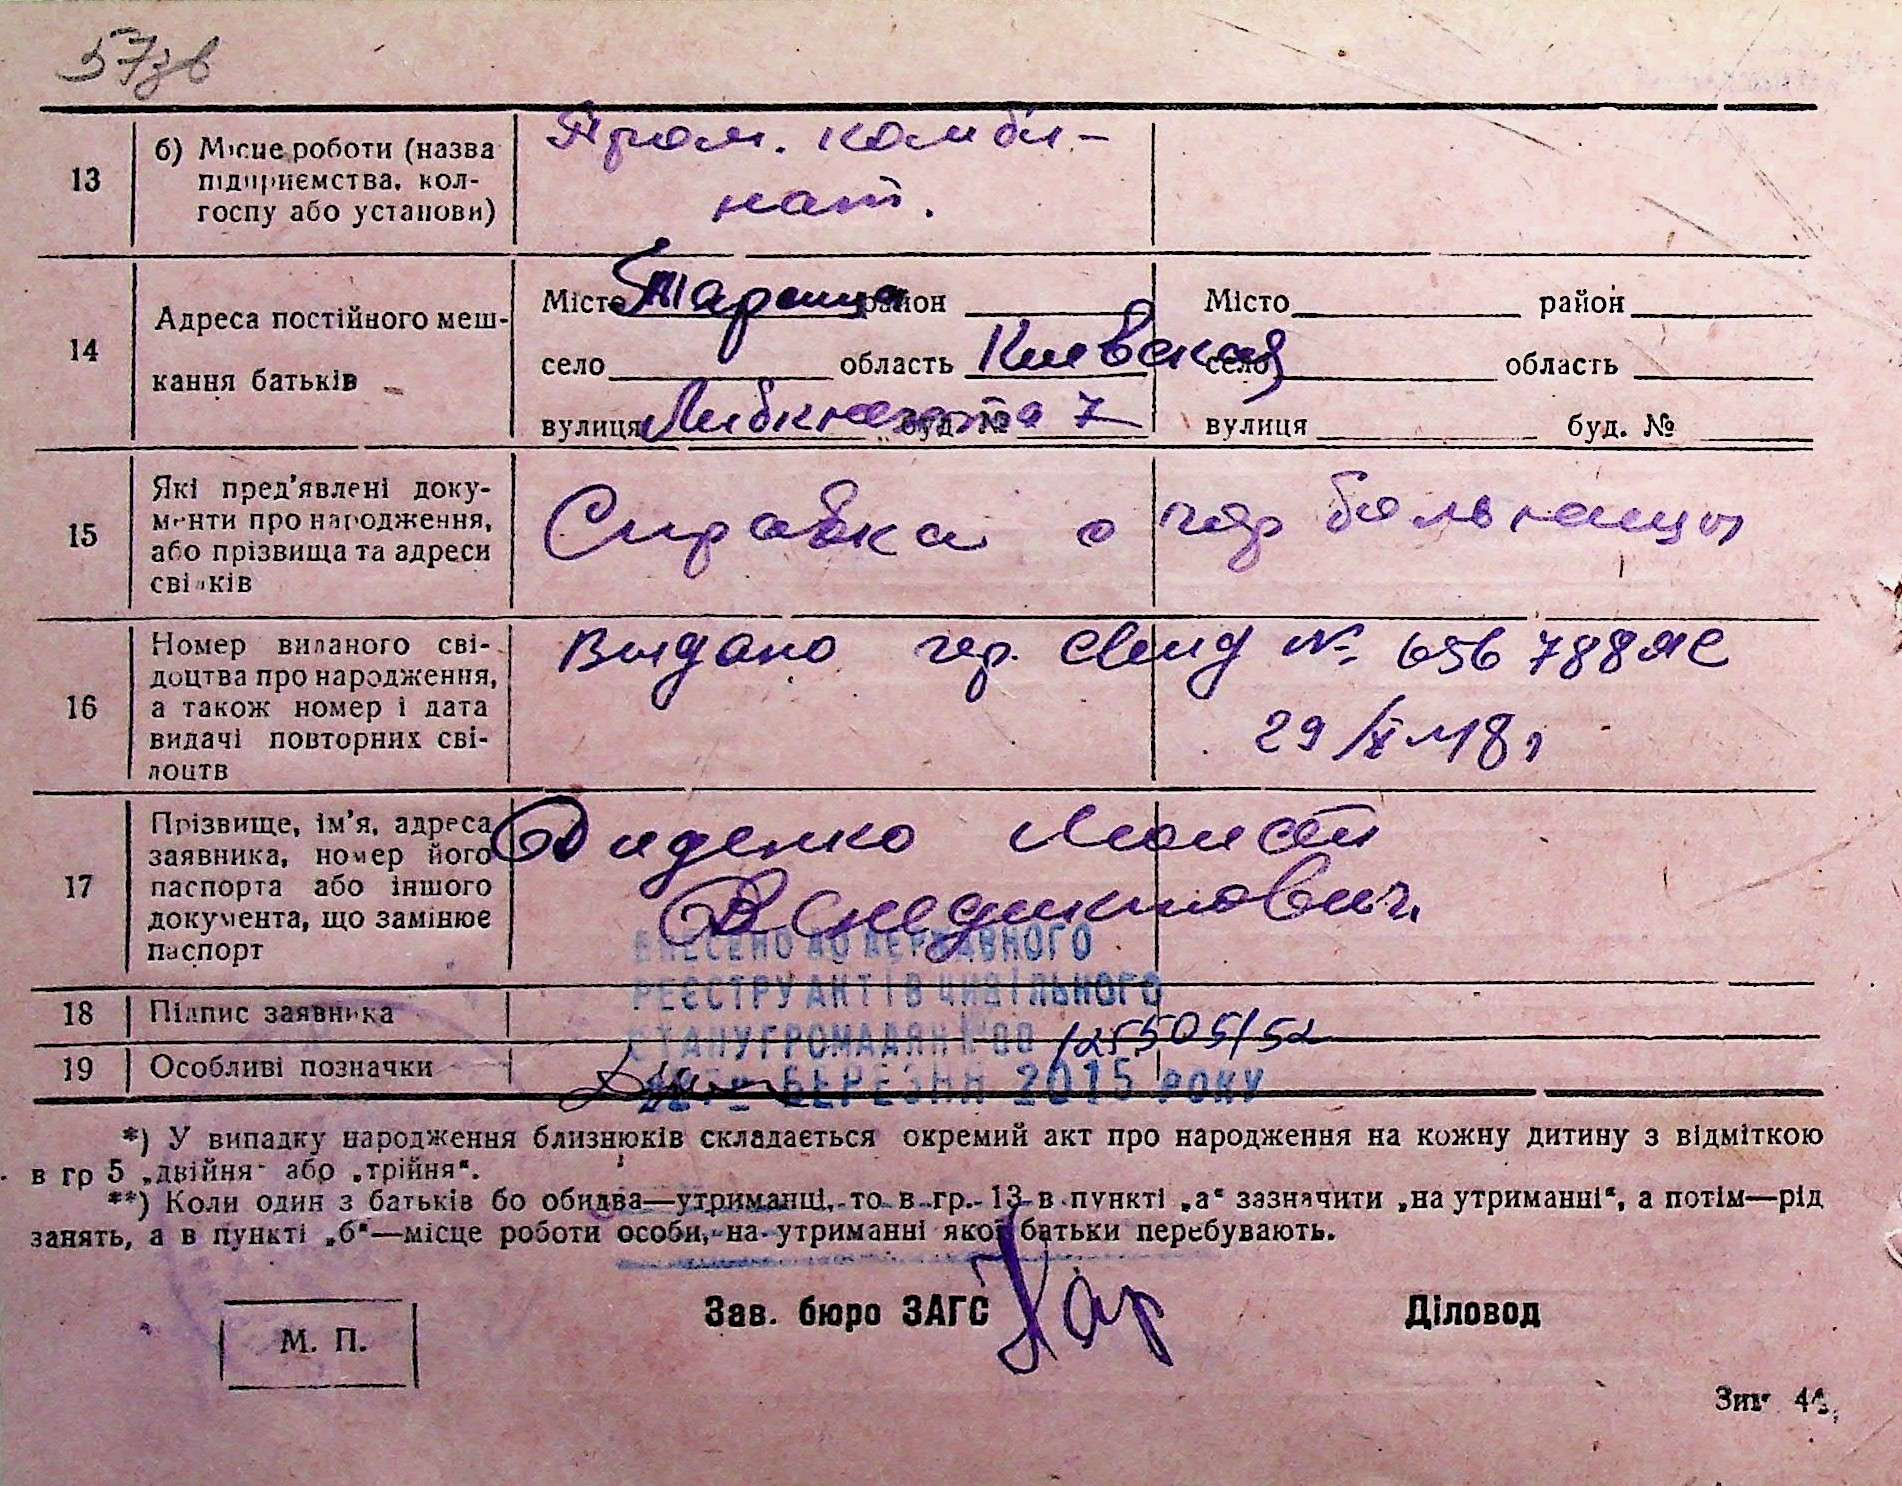 57зв
13
б) Місце роботи (назва
підприємства, кол-
госпу або установи)
Пром. комби-
нат.
14
Адреса постійного меш-
кання батьків
Місто Тараща район
село область Киевская
вулиця Либкнехта буд. № 7
Місто район
село область
вулиця буд. №
15
Які пред'явлені доку-
менти про народження,
або прізвища та адреси
свідків
Справка о гор больницы
16
Номер виданого сві-
доцтва про народження,
а також номер і дата
видачі повторних сві-
доцтв
Выдано свид № 656788
29/X 48 г
17
Прізвище, ім'я, адреса
заявника, номер його
паспорта або іншого
документа, що замінює
паспорт
Диденко Моисей
Венедиктович
ВНЕСЕНО ДО ДЕРЖАВНОГО
РЕЄСТРУ АКТІВ ЦИВІЛЬНОГО
СТАНУ ГРОМАДЯН 125505152
БЕРЕЗНЯ 2015 РОКУ
18
Підпис заявника
19
Особливі позначки
*) У випадку народження близнюків складається окремий акт про народження на кожну дитину з відміткою
в гр 5 „двійня" або „трійня".
**) Коли один з батьків бо обидва—утриманці, то в гр. 13 в пункті „а" зазначити „на утриманні", а потім—рід
занять, а в пункті „б"—місце роботи особи, на утриманні якої батьки перебувають.
М. П.
Зав. бюро ЗАГС
Діловод